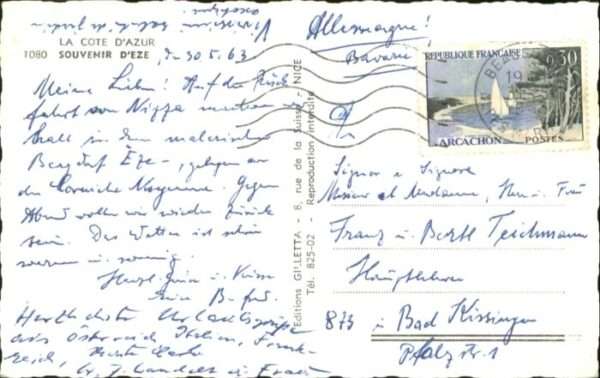 LA COTE D'AZUR
1080 SOUVENIR D'EZE
30.5.63
Meine Lieben! Auf der Rück-
fahrt von Nizza machen wir
halt in dem malerischen
Bergdorf Èze, gelegen an
der Corniche Moyenne. Gegen
Abend wollen wir wieder zurück
sein. Das Wetter ist schön
warm u. sonnig.
Herzl. Grüße u. Küsse
Herzlichste Urlaubsgrüße
aus Österreich, Italien, Frank-
reich,
Editions GILLETTA - 8, rue de la Suisse - NICE
Tél. 825-02 - Reproduction interdite
Allemagne!
Bavaria
REPUBLIQUE FRANÇAISE
0,30
ARCACHON
POSTES
BEAU
19
Signor e Signora
Monsieur et Madame, Herr u. Frau
Franz u. Bertl Teichmann
Hauptlehrer
873 in Bad Kissingen
Pfalzstr. 1